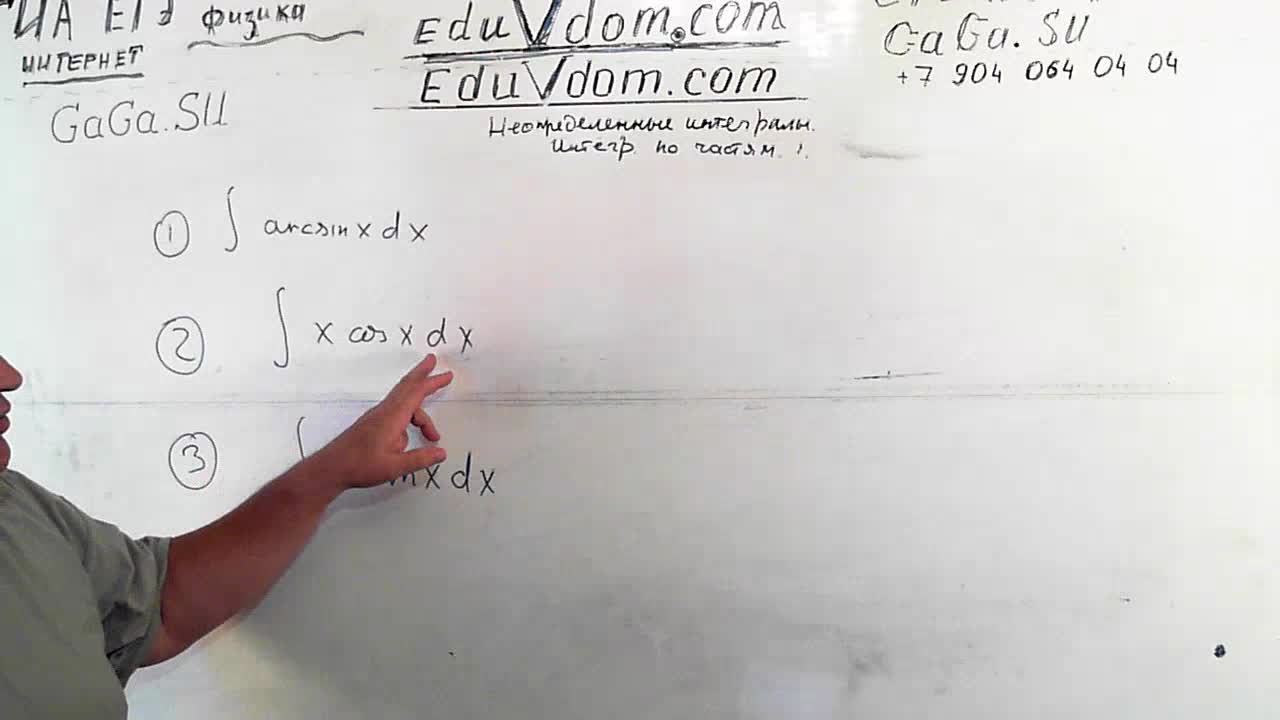 физика
ИНТЕРНЕТ
GaGa.SU
EduVdom.com
EduVdom.com
Неопределенные интегралы.
Интегр. по частям 1.
GaGa.SU
+7 904 064 04 04
① ∫ arcsin x dx
② ∫ x cos x dx
③ ∫ x dx